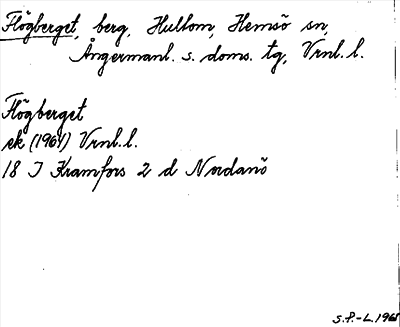 Flögberget, berg, Hullom, Hemsö sn,
Ångermanl. s. doms. tg, Vrnl. l.
Flögberget
ek (1964) Vrnl. l.
18 J Kramfors 2 d Nordanö
S.P.-L. 1965